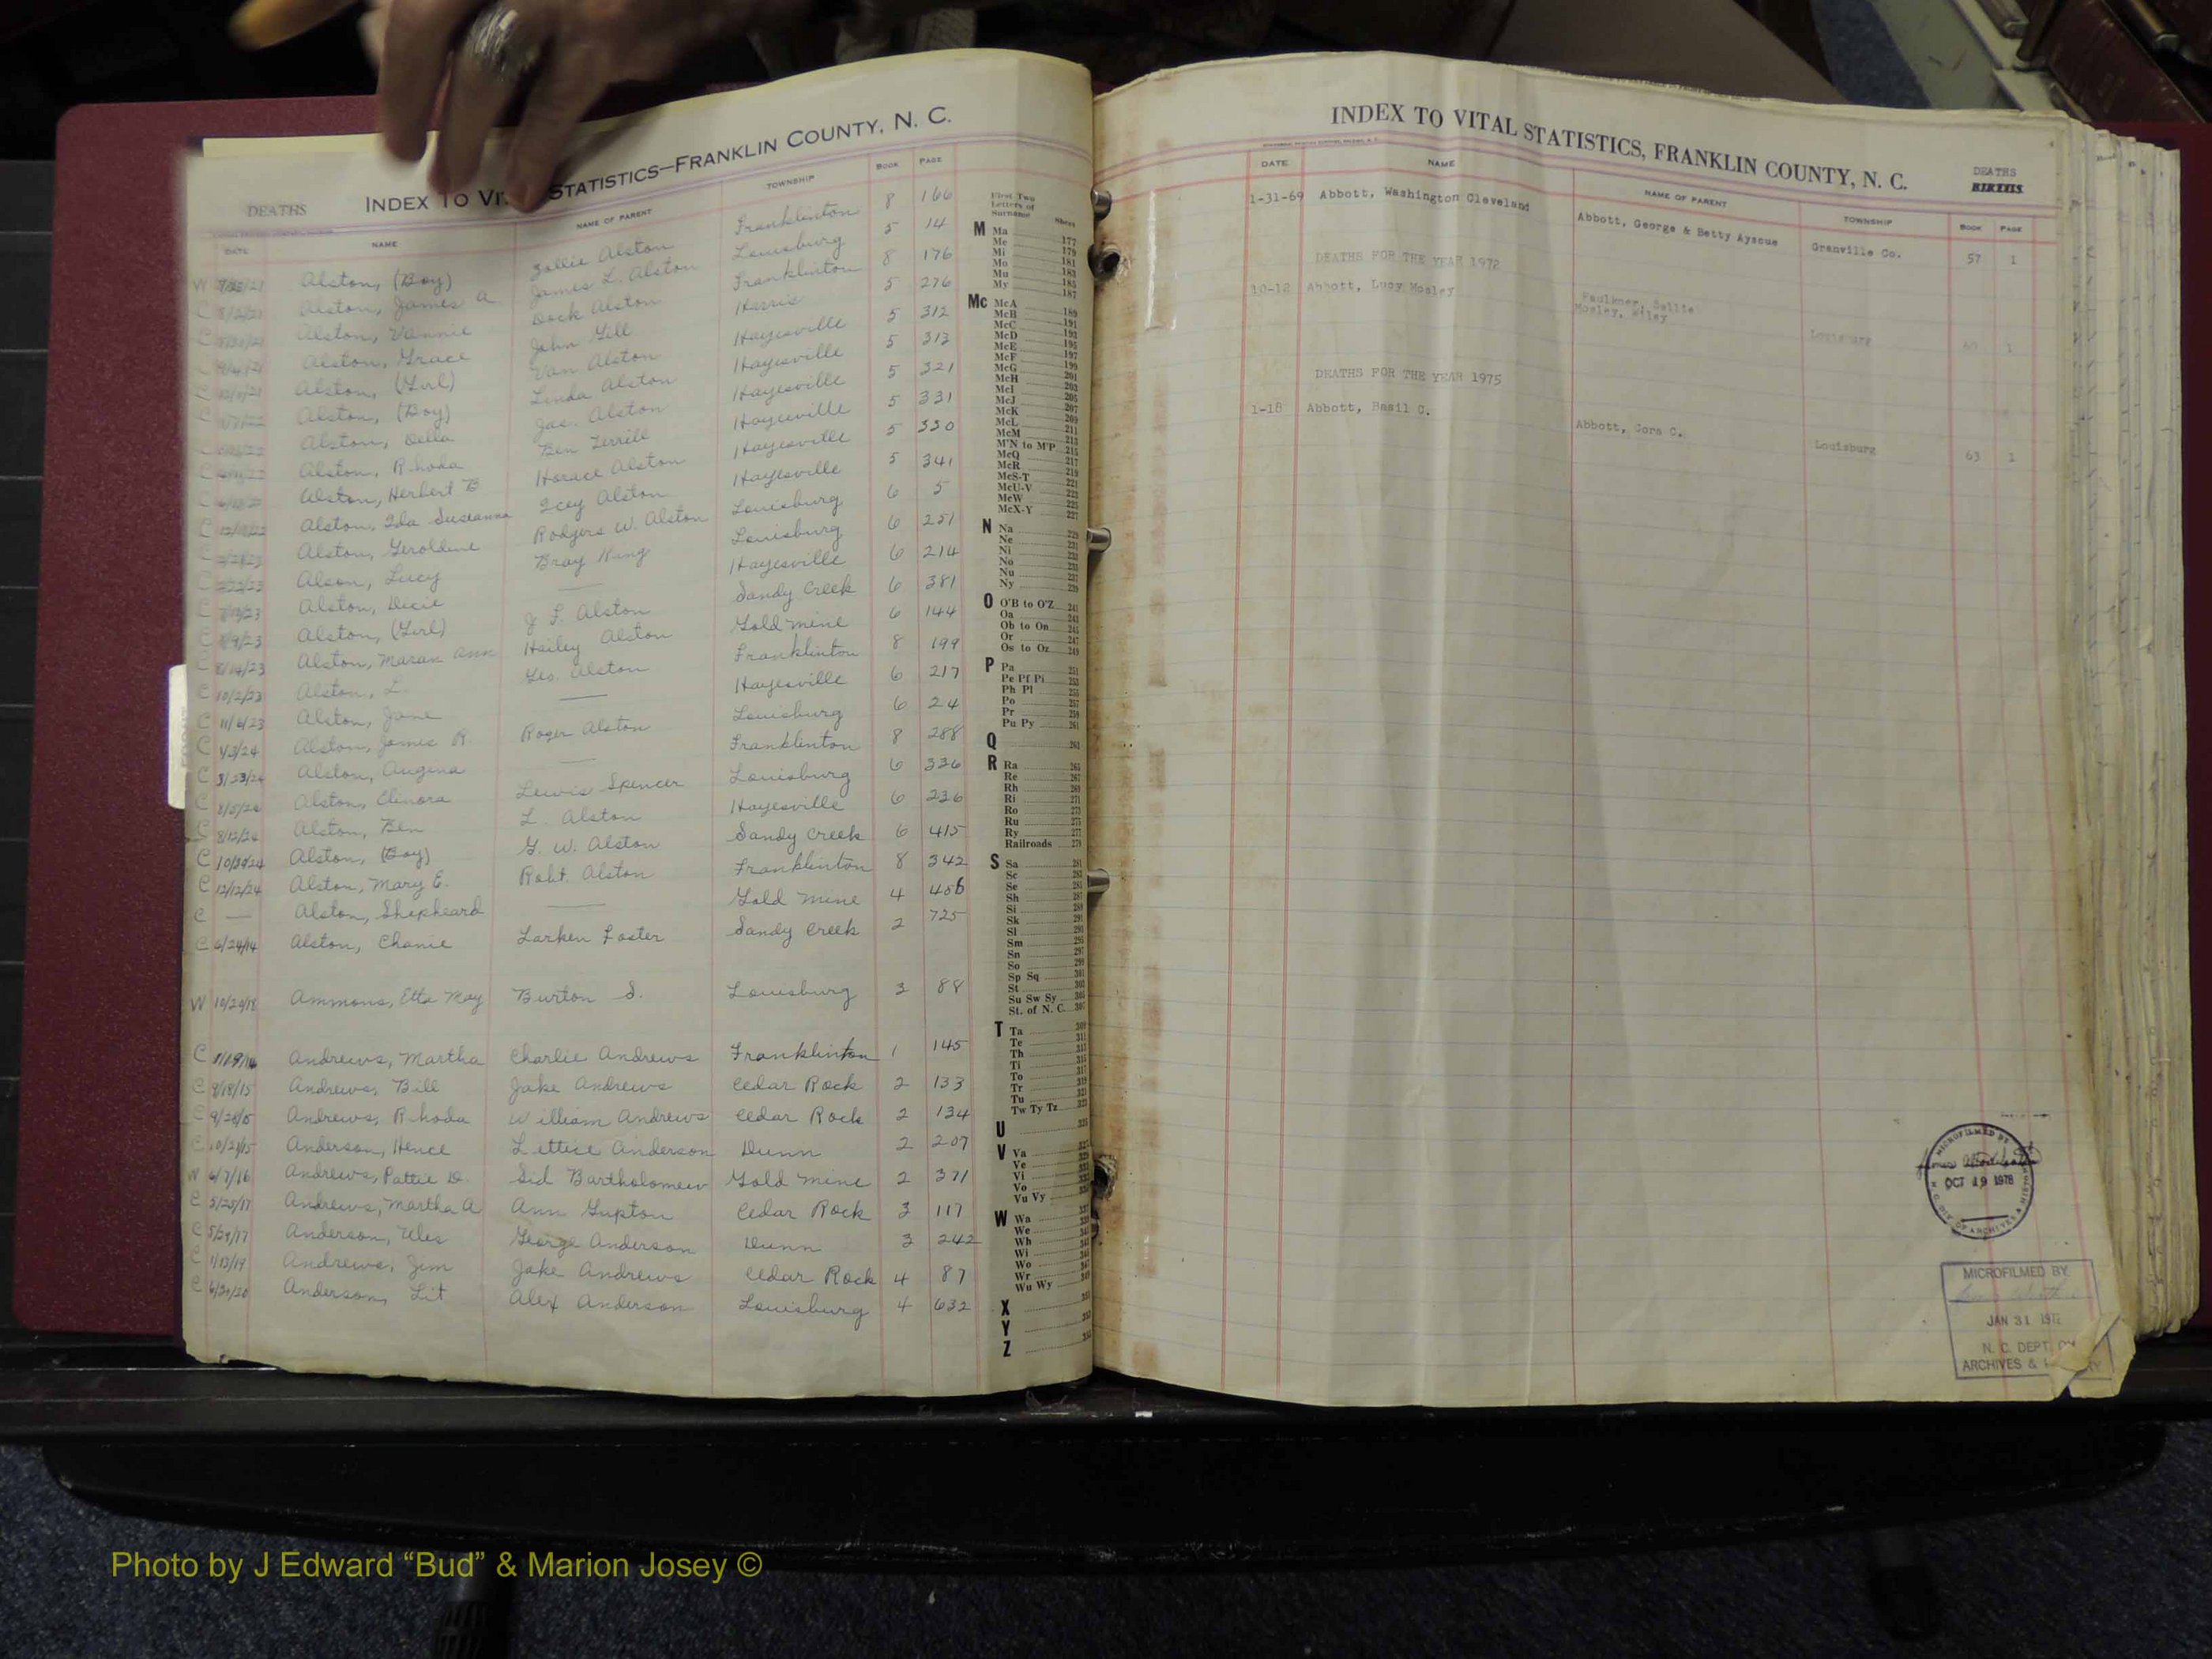 INDEX TO VI STATISTICS—FRANKLIN COUNTY, N. C.
DEATHS
DATE NAME NAME OF PARENT TOWNSHIP BOOK PAGE
W Alston, (Boy) Zollie Alston Franklinton 8 166
C 8/2/21 Alston, James A James L. Alston Louisburg 5 14
C Alston, Vannie Dock Alston Franklinton 8 176
C 9/4/21 Alston, Grace John Gill Harris 5 276
C Alston, (Girl) Van Alston Hayesville 5 312
C Alston, (Boy) Linda Alston Hayesville 5 313
C Alston, Della Jas. Alston Hayesville 5 321
C Alston, Rhoda Ben Terrill Hayesville 5 331
C Alston, Herbert B Horace Alston Hayesville 5 330
C Alston, Ida Susianna Icey Alston Hayesville 5 341
C Alston, Geroldine Rodgers W. Alston Louisburg 6 5
C Alson, Lucy Bray King Louisburg 6 251
C Alston, Dicie — Hayesville 6 214
C 8/9/23 Alston, (Girl) J. F. Alston Sandy Creek 6 381
C 8/14/23 Alston, Maran Ann Hailey Alston Gold mine 6 144
C 10/2/23 Alston, L. Geo. Alston Franklinton 8 199
C 11/6/23 Alston, Jane — Hayesville 6 217
C 1/2/24 Alston, James R Roger Alston Louisburg 6 24
C 3/23/24 Alston, Augena — Franklinton 8 288
C 8/5/24 Alston, Elinora Lewis Spencer Louisburg 6 336
C 8/12/24 Alston, Ben L. Alston Hayesville 6 236
C 10/30/24 Alston, (Boy) G. W. Alston Sandy Creek 6 415
C 12/12/24 Alston, Mary E. Robt. Alston Franklinton 8 342
C — Alston, Shepheard — Gold mine 4 406
C 6/24/14 Alston, Chanie Larken Foster Sandy Creek 2 725
W 10/29/18 Ammons, Etta May Burton S. Louisburg 3 88
C 1/19/14 Andrews, Martha Charlie Andrews Franklinton 1 145
C 8/18/15 Andrews, Bill Jake Andrews Cedar Rock 2 133
C 9/28/15 Andrews, Rhoda William Andrews Cedar Rock 2 134
C 10/21/15 Anderson, Hence Lettice Anderson Dunn 2 207
W 6/7/16 Andrews, Pattie D. Sid Bartholomew Gold mine 2 371
C 5/25/17 Andrews, Martha A Ann Gupton Cedar Rock 3 117
C 5/29/17 Anderson, Wes George Anderson Dunn 3 242
C 1/13/19 Andrews, Jim Jake Andrews Cedar Rock 4 87
C 6/20/20 Anderson, Lit Alex Anderson Louisburg 4 632
First Two Letters of Surname Sheet
M Ma 177
Me 179
Mi 181
Mo 183
Mu 185
My 187
Mc McA 189
McB 191
McC 193
McD 195
McE 197
McF 199
McG 201
McH 203
McI 205
McJ 207
McK 209
McL 211
McM 213
M'N to M'P 215
McQ 217
McR 219
McS-T 221
McU-V 223
McW 225
McX-Y 227
N Na
Ne
Ni
No
Nu
Ny
O O'B to O'Z 241
Oa
Ob to On
Or
Os to Oz
P Pa 251
Pe Pf Pi
Ph Pl
Po
Pr
Pu Py 261
Q
R Ra 265
Re 267
Rh 269
Ri 271
Ro 273
Ru 275
Ry 277
Railroads 279
S Sa 281
Sc
Se
Sh
Si
Sk
Sl
Sm
Sn
So
Sp Sq
St
Su Sw Sy
St. of N. C.
T Ta
Te
Th
Ti
To
Tr
Tu
Tw Ty Tz
U
V Va
Ve
Vi
Vo
Vu Vy
W Wa
We
Wh
Wi
Wo
Wr
Wu Wy
X
Y
Z
INDEX TO VITAL STATISTICS, FRANKLIN COUNTY, N. C.
DEATHS
BIRTHS
DATE NAME NAME OF PARENT TOWNSHIP BOOK PAGE
1-31-69 Abbott, Washington Cleveland Abbott, George & Betty Ayscue Granville Co. 57 1
DEATHS FOR THE YEAR 1972
10-12 Abbott, Lucy Mosley Faulkner, Sallie
Mosley, Wiley Louisburg 60 1
DEATHS FOR THE YEAR 1975
1-18 Abbott, Basil C. Abbott, Cora C. Louisburg 63 1
MICROFILMED BY
OCT 19 1978
N. C. DIV. OF ARCHIVES & HISTORY
MICROFILMED BY
JAN 31
N. C. DEPT.
ARCHIVES &
Photo by J Edward “Bud” & Marion Josey ©